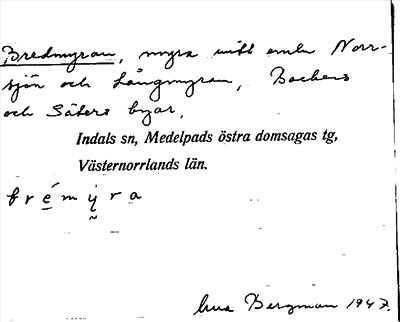 Bredmyran, myra mitt emlu Norr-
sjön och Långmyran, Backens
och Säters byar,
Indals sn, Medelpads östra domsagas tg,
Västernorrlands län.
b r é m y r a
Bergman 1947.